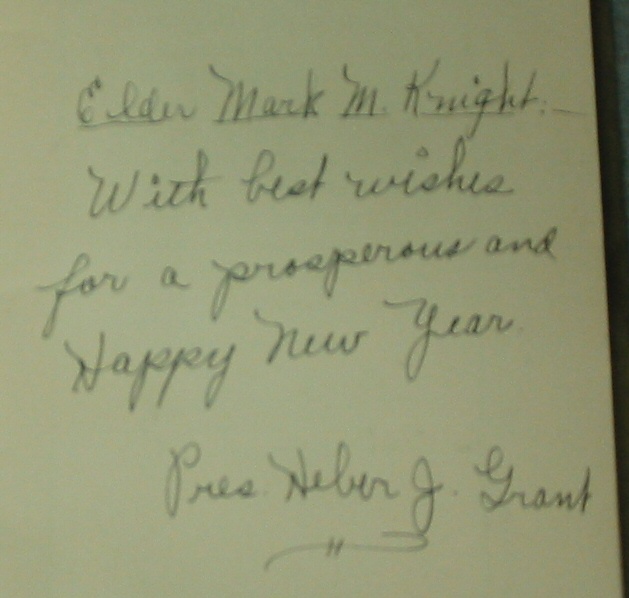 Elder Mark M. Knight:
With best wishes
for a prosperous and
Happy New Year.
Pres. Heber J. Grant